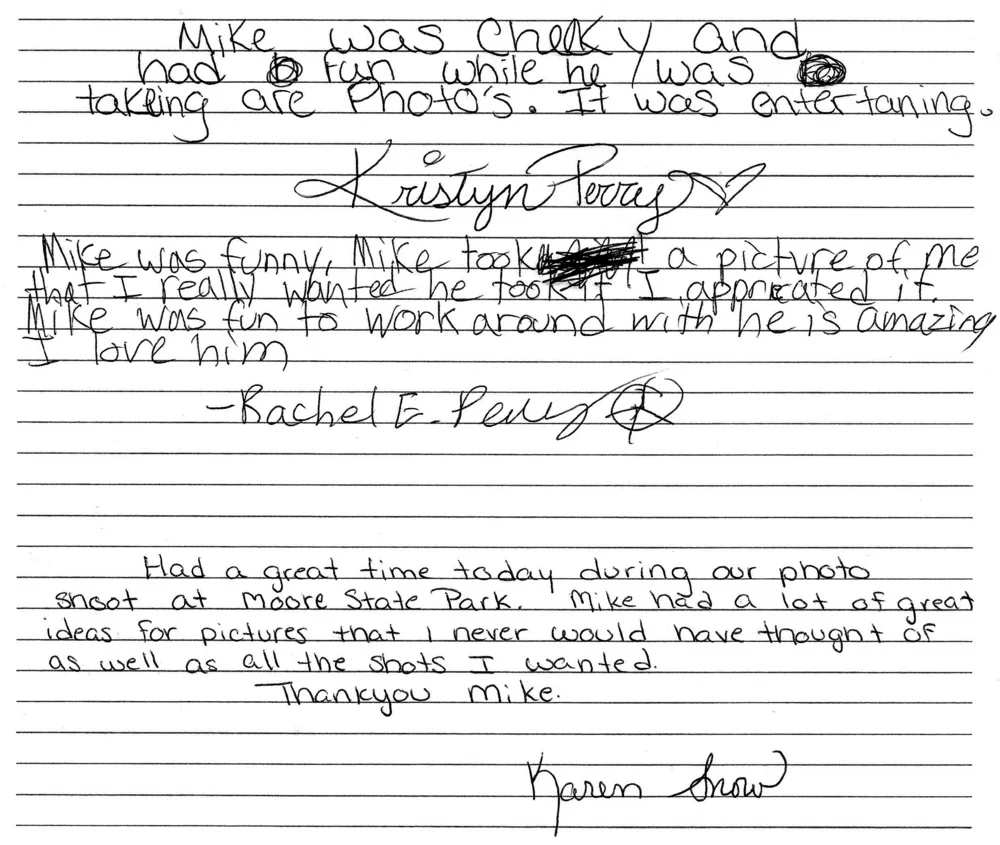 Mike was Chelky and
had fun while he was
takeing are Photo's. It was entertaning.
Kristyn Perry
Mike was funny, Mike took a picture of me
that I really wanted he took it I appricated it.
Mike was fun to work around with he is amazing
I love him
-Rachel E. Perry
Had a great time today during our photo
shoot at Moore State Park. Mike had a lot of great
ideas for pictures that I never would have thought of
as well as all the shots I wanted.
Thankyou Mike.
Karen Snow